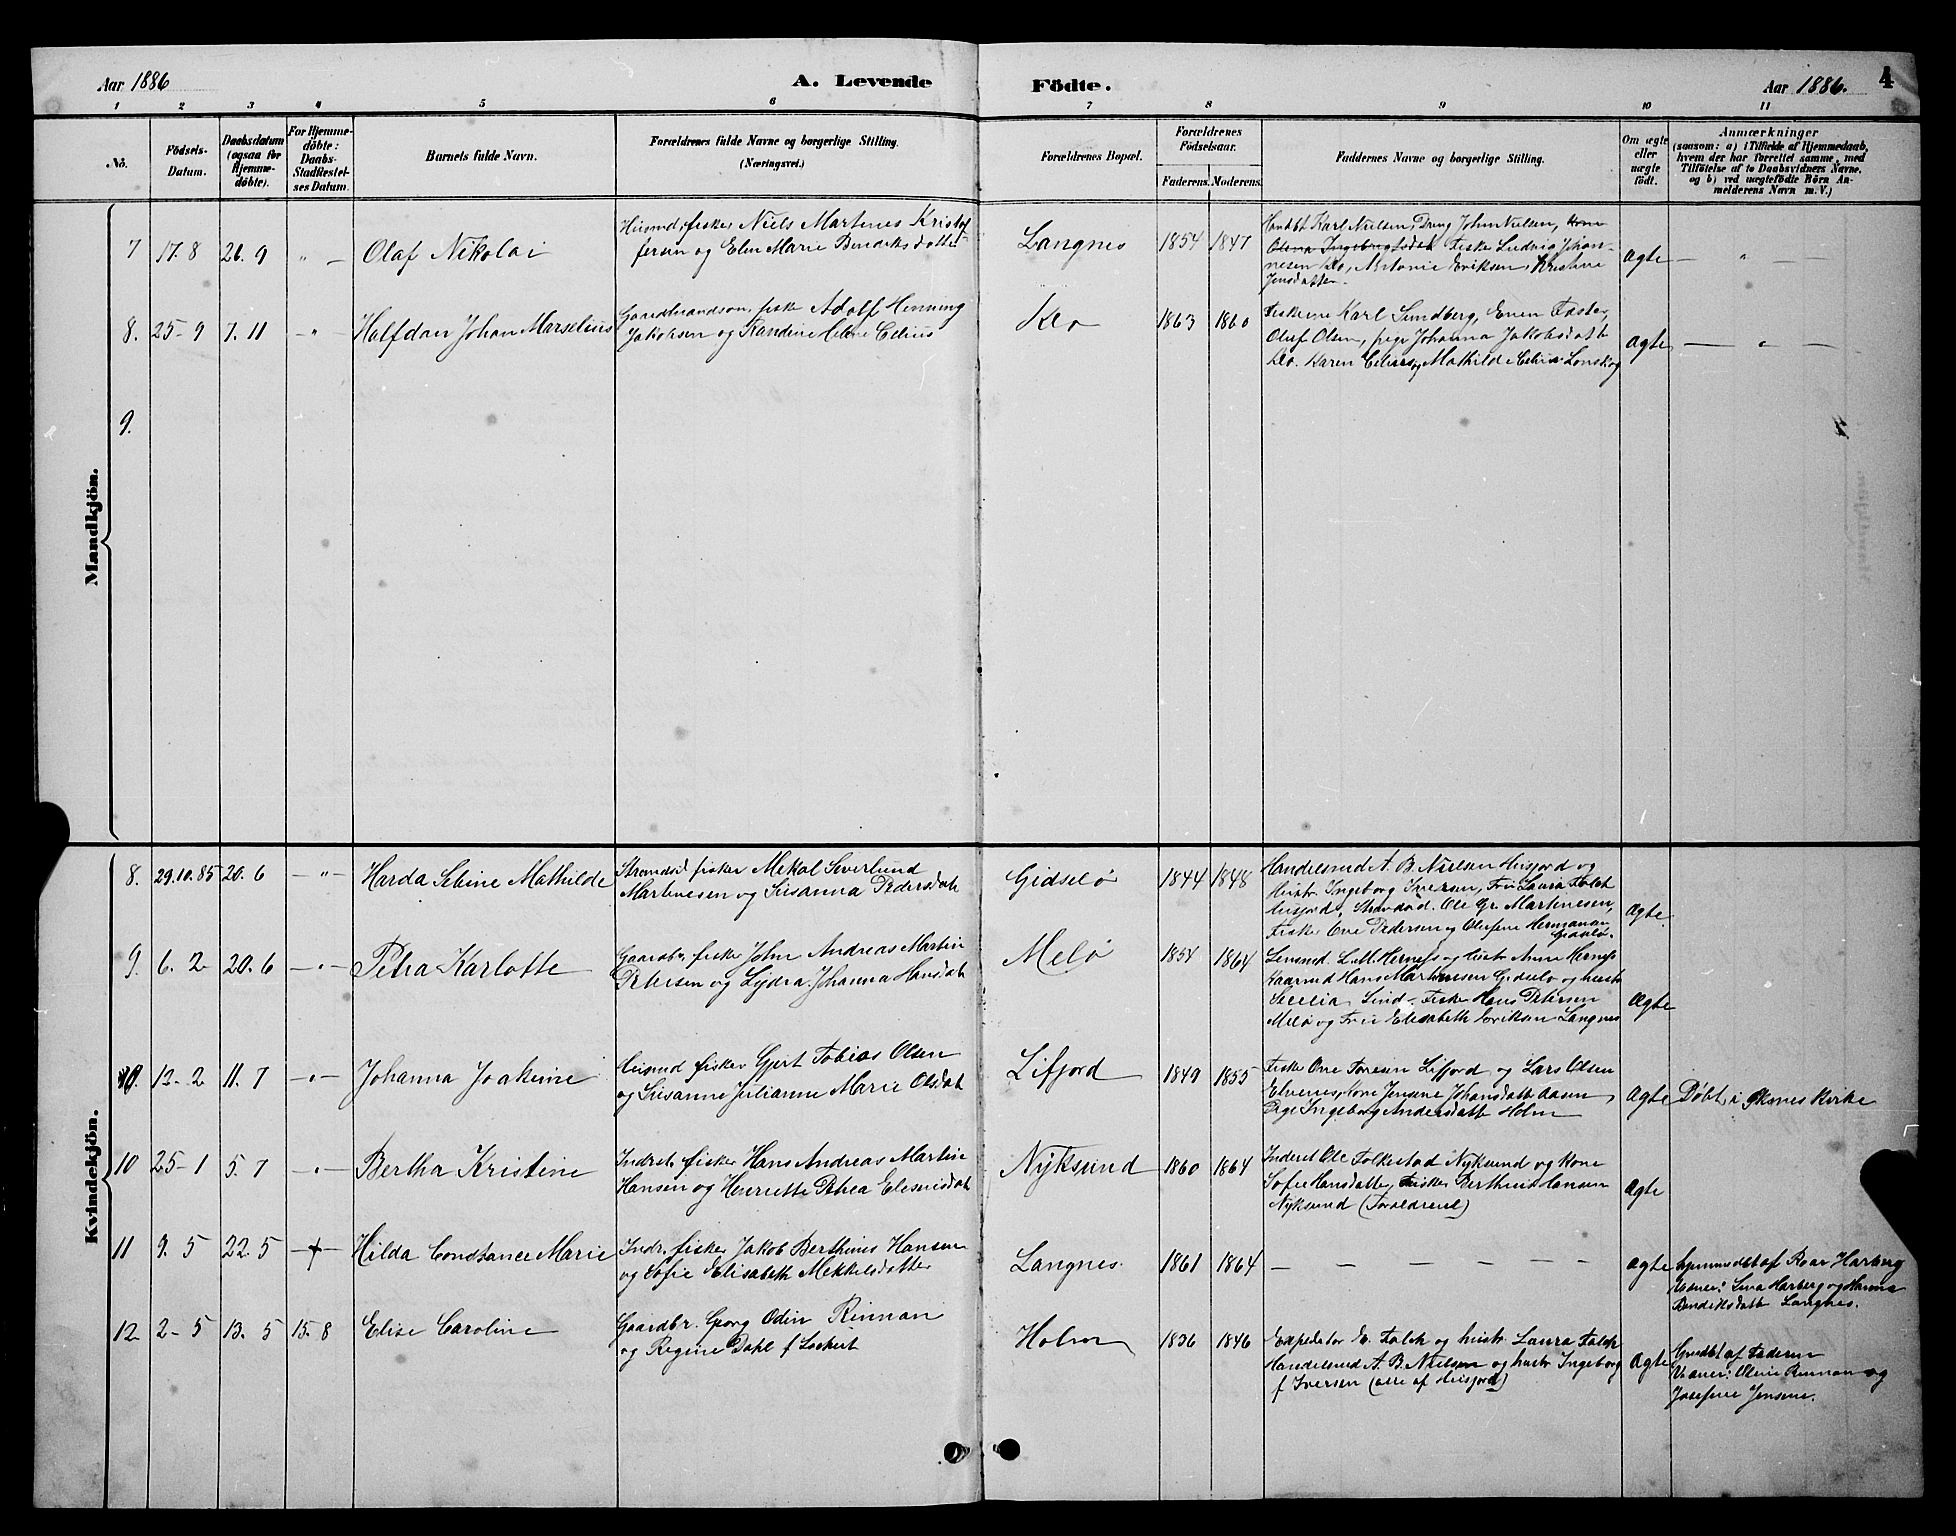 Aar 1886
A. Levende
Födte.
Aar 1886.
4
1 2 3 4 5 6 7 8 9 10 11
No.
Födsels-
Datum.
Daabsdatum
(ogsaa for
Hjemme-
döbte).
For Hjemme-
döbte:
Daabs-
Stadfæstel-
ses Datum.
Barnets fulde Navn.
Forældrenes fulde Navne og borgerlige Stilling.
(Næringsvei.)
Forældrenes Bopæl.
Forældrenes
Födselsaar.
Faderens. Moderens.
Faddernes Navne og borgerlige Stilling.
Om ægte
eller
uægte
födt.
Anmærkninger
(saasom: a) i Tilfælde af Hjemmedaab,
hvem der har forrettet samme, med
Tilföielse af to Daabsvidners Navne.
og b) ved uægtefödte Börn An-
melderens Navn m. V.)
Mandkjön.
7 17.8 26.9 " - Olaf Nikolai
Husmd. fisker Niels Martenes Kristof
fersen og Elen Marie Bendiksdatter
Langnes 1854 1847
Karl Nielsen, Dreng John Nielsen, Kone
Olena Ingebrigtsdat Fisker Ludvig Johan-
nesen Klo, Antonie Eriksen, Kristine
Jensdatter
Ægte - " - -
8. 25-9 7.11 - " - Halfdan Johan Marselius
Gaardmandsøn, fisker Adolf Henning
Jakobsen og Randine Helene Celius
Klo 1863 1860
Fiskerne Karl Sundberg, Enen
Oluf Olsen, pige Johanna Jakobsdatt
Klo. Karen Celius og Mathilde Celius Lonskog
Ægte - " -
9.
Kvindekjön.
8. 29.10.85 20.6 - " - Harda Sebine Mathilde
Strandsd. fisker Mekal Severlund
Martinesen og Susanna Pedersdatt
Gidselø 1844 1848
Handelsmd A. B. Nielsen Husjord og
Hustr. Ingeborg Iversen, Fru Laura Falch
Husjord, Strandsd. Ole Gr. Martinesen,
Fisker Ove Pedersen og Olufine Hermanan
Gidselø.
Ægte
9. 6.2 20.6 - " - Petra Karlotte
Gaardbr. fisker John Andreas Martin
Petersen og Lydia Johanna Hansdatt
Melø 1854 1864
Lensmd. L. M. Herness og Hustr Anna Herness
Kaarmd Hans Martinesen Gidselø og hustr
Secelia Lind - Fisker Hans Petersen
Melø og Fru Elisabeth Eriksen Langnes
Ægte
10. 12-2 11.7 - " - Johanna Joakime
Husmd fisker Gjert Tobias Olsen
og Susanne Julianne Marie Olsdat
Lifjord 1849 1855
Fisker Ove Toresen Lifjord og Lars Olsen
Elvenes, Kone Jensine Johansdatt Aasen,
Pige Ingeborg Andersdatt Holm
Ægte Døbt i Øksnes Kirke
10 25-1 5.7 - " - Bertha Kristine
Indrst. fisker Hans Andreas Martin
Hansen og Henriette Petrea Eleseusdat
Nyksund 1860 1864
Inderst Ole Falkestad Nyksund og Kone
Sofie Hansdatter, Fisker Berthius Hansen
Nyksund (Forældrene)
Ægte
11 9.5 22.5 - † - Hilda Constance Marie
Indr. fisker Jakob Berthinus Hansen
og Sofie Elisabeth Mekkelsdatter
Langnes. 1861 1864 - - - - - - -
Ægte hjemmedbt af Roar Harberg
Vidner: Lina Harberg og Hanna
Bendiksdatt Langnes.
12 2-5 13.5 15.8 Elise Caroline
Gaardbr. Georg Odin Rinnan
og Regine Dahl f Lockert
Holm 1836 1846
Expeditor E. Falch og hustr. Laura Falch
Handelsmd A. B. Nielsen og hustr Ingeborg
f Iversen (alle af Husjord)
Ægte
af Faderen
Vidner: Oline Rinnan og
Josefine Jensine.